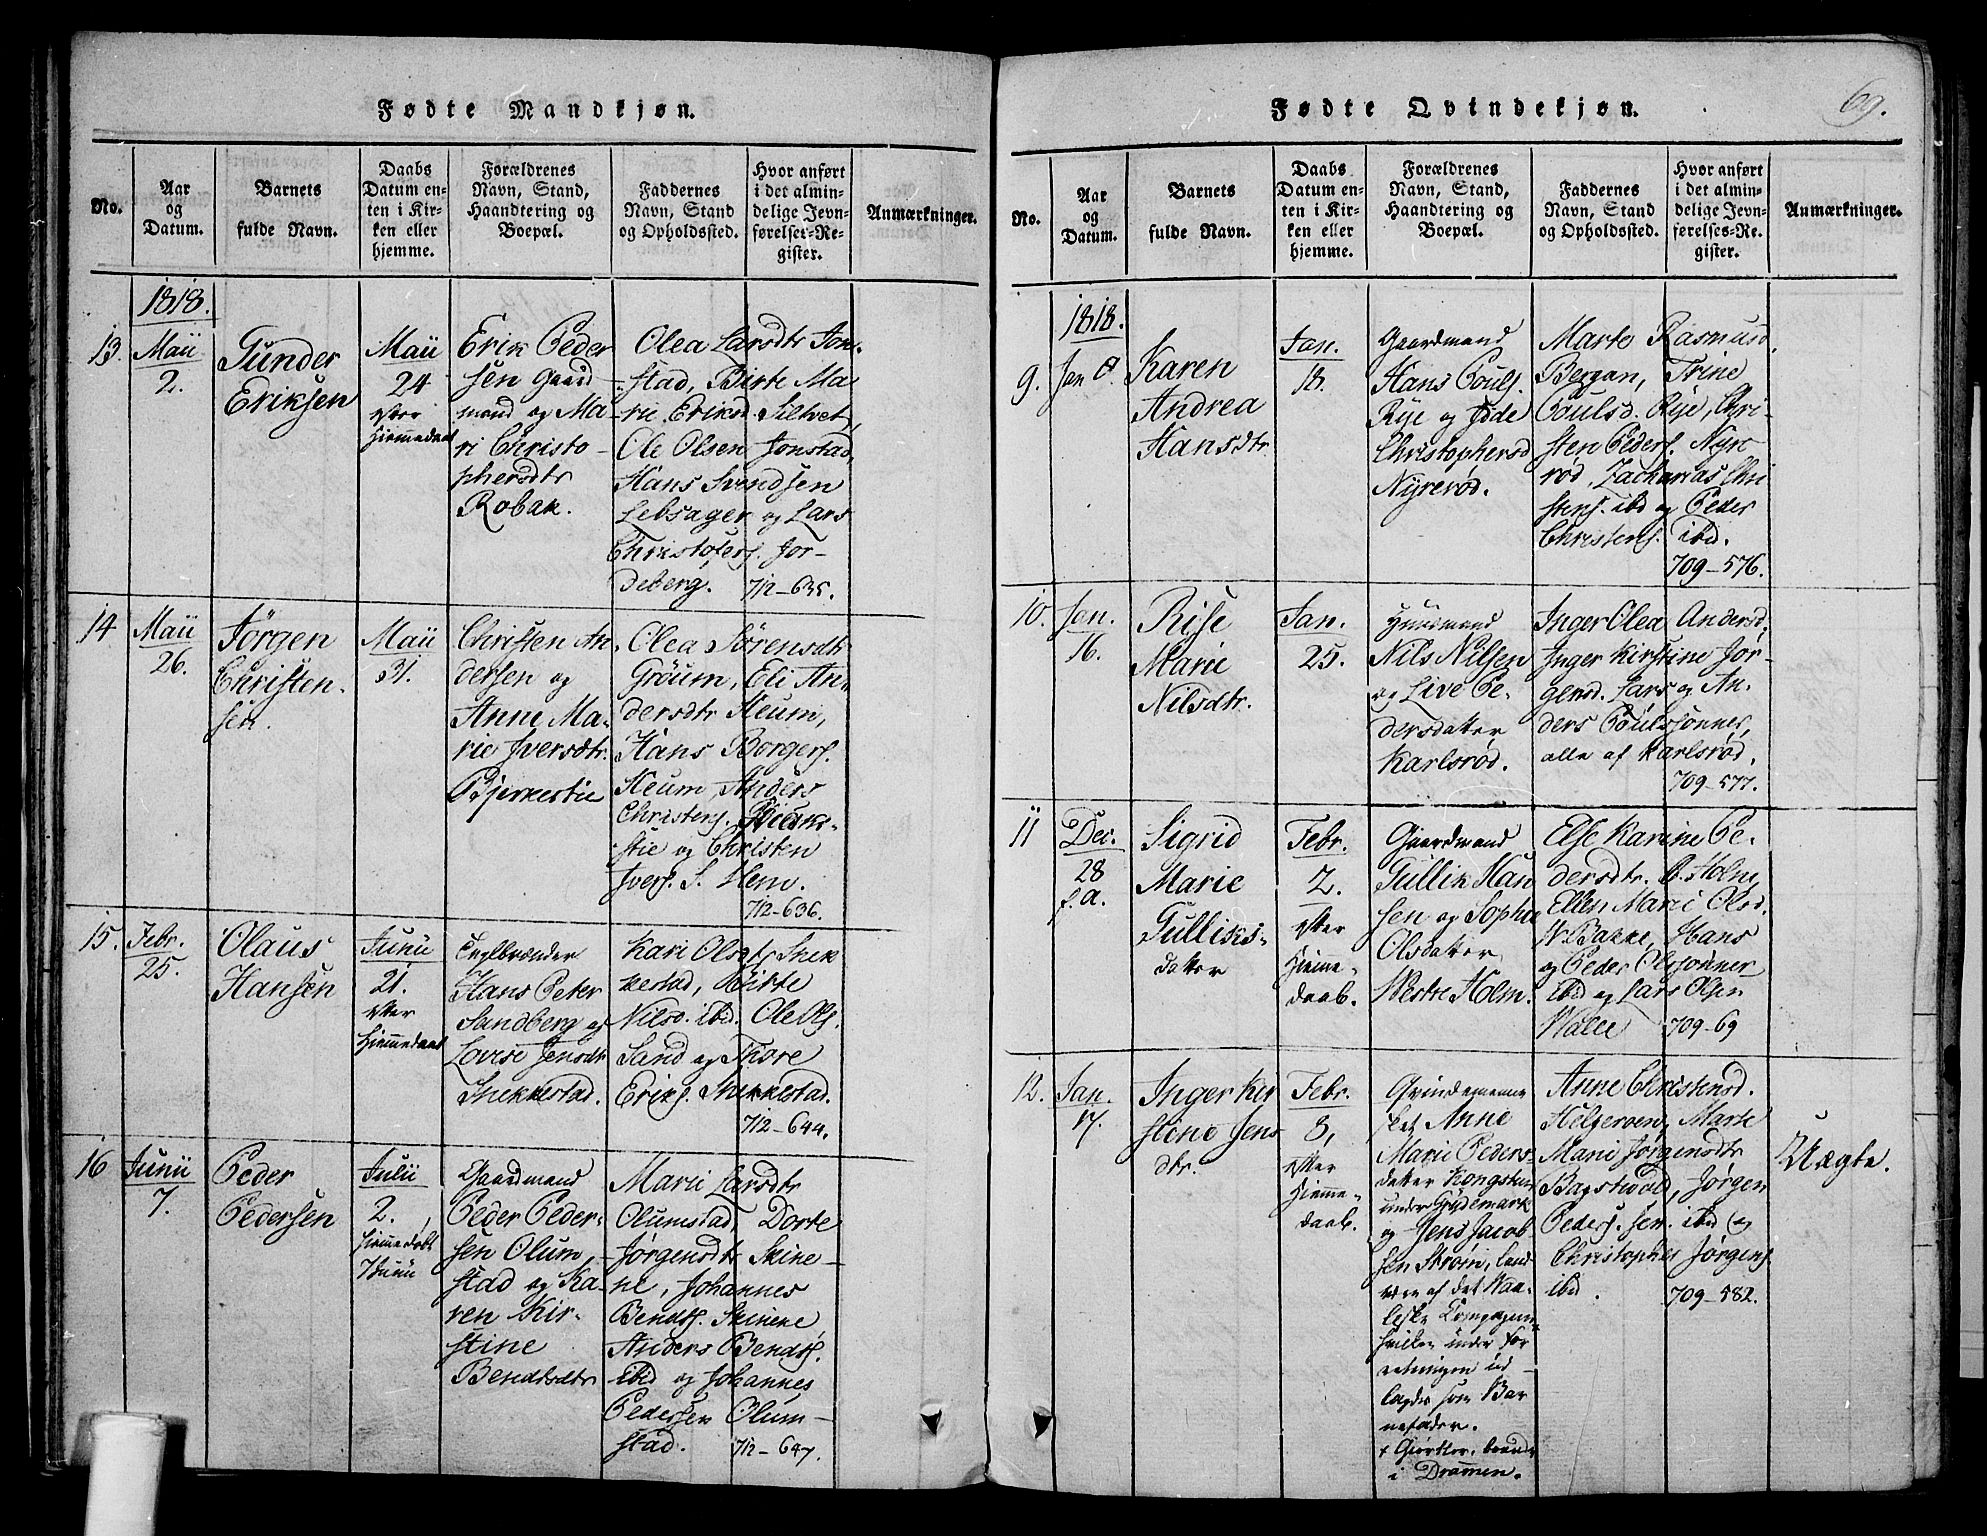 Fødte Mandkjøn.
No.
Aar
og
Datum.
Barnets
fulde Navn.
Daabs
Datum en-
ten i Kir-
ken eller
hjemme.
Forældrenes
Navn, Stand,
Haandtering og
Boepæl.
Faddernes
Navn, Stand
og Opholdssted.
Hvor anført
i det almin-
delige Jevn-
førelses-Re-
gister.
Anmærkninger.
1818.
13.
Maii
2.
Gunder
Eriksen
Maii
24
efter
Hiemmedaab
Erik Peder
sen Gaard-
mand og Ma-
ri Christo-
phersdtr
Robak.
Olea Larsdtr Jon-
stad, Birte Ma-
rie Eriksd. Siltvet,
Ole Olsen Jonstad,
Hans Svendsen
Lebsager og Lars
Christofers. For-
deberg. 712-635.
14
Maii
26.
Jörgen
Christen-
sen.
Maii
31.
Christen An-
dersen og
Anne Ma-
rie Iversdtr.
Bjerkestie
Olea Sörensdtr
Gröum, Eli An-
dersdtr Heum,
Hans Borgers.
Heum, Anders
Christens.
stie og Christen
Ivers. S. Hem.
712-636.
15.
Febr.
25.
Olaus
Hansen
Junii
21.
efter
Hiemmedaab
Teglbrænder
Hans Peter
Sandberg og
Lovise Jensdtr
Snekkestad.
Kari Olsdtr Snek
kestad, Birte
Nilsd. ibid. Ole Ols.
Sand og Thore
Eriks. Snekkestad.
712-644.
16
Junii
7.
Peder
Pedersen
Julii
2.
Hiemmedöbt
7 Junii
Gaardmand
Peder Peder-
sen Olum-
stad og Ka-
ren Kir-
stine
Bendtsdtr
Marie Larsdtr
Olumstad, Dorte
Jörgensdtr Skine-
ne, Johannes
Bendts. Skinene
Anders Bendts.
ibid og Johannes
Pedersen Olum-
stad. 712-647.
Fødte Qvindekjøn.
69.
No.
Aar
og
Datum.
Barnets
fulde Navn.
Daabs
Datum en-
ten i Kir-
ken eller
hjemme.
Forældrenes
Navn, Stand,
Haandtering og
Boepæl.
Faddernes
Navn, Stand
og Opholdssted.
Hvor anført
i det almin-
delige Jevn-
førelses-Re-
gister.
Anmærkninger.
1818.
9.
Jan
Karen
Andrea
Hansdtr
Jan.
18.
Gaardmand
Hans Pouls.
Rye og
Christophersd
Nyrerød.
Marte Rasmusd.
Bergan, Trine
Poulsd. Rye, Chri-
sten Peders. Nyre
rød, Zacharias Chri
stens. ibd og Peder
Christens. ibid.
709-576.
10.
Jan.
16.
Rise
Marie
Nilsdtr.
Jan.
25.
Huusmand
Nils Nilsen
og Live Pe-
dersdatter
Karlsrød.
Inger Olea Andersd.
Inger Kirstine Jör-
gensd. Lars og An-
ders Poulssönner,
alle af Karlsrød.
709-577.
11
Dec.
28
f. a.
Sigrid
Marie
Gulliks-
datter
Febr.
2.
efter
Hieme-
daab.
Gaardmand
Gullik Han
sen og Sophie
Olsdatter
Nestre Holm.
Else Karine Pe-
dersdtr. Ö. Holm,
Ellen Marie Olsd.
N. Bakke, Hans
og Peder Olssönner
ibid og Lars Olsen
Walle 709-69
12.
Jan.
17.
Inger Kir
stine Jens
dtr.
Febr.
8,
efter
Hieme-
daab.
Qvindemenne
sket Anne
Marie Peders-
datter Kongsteen
under Gydemark
og Jens Jacob-
sen Strøm, Land
værn af det Waa-
leske Compagnie
hvilken under for
retningen ud-
lagdes som Bar
nefader.
i Drammen.
Anne Christensd.
Helgeroen, Marte
Marie Jørgensdtr
Bagstvold, Jørgen
Peders. sen. ibid og
Christopher Jørgens.
ibid.
709-582.
Uægte.